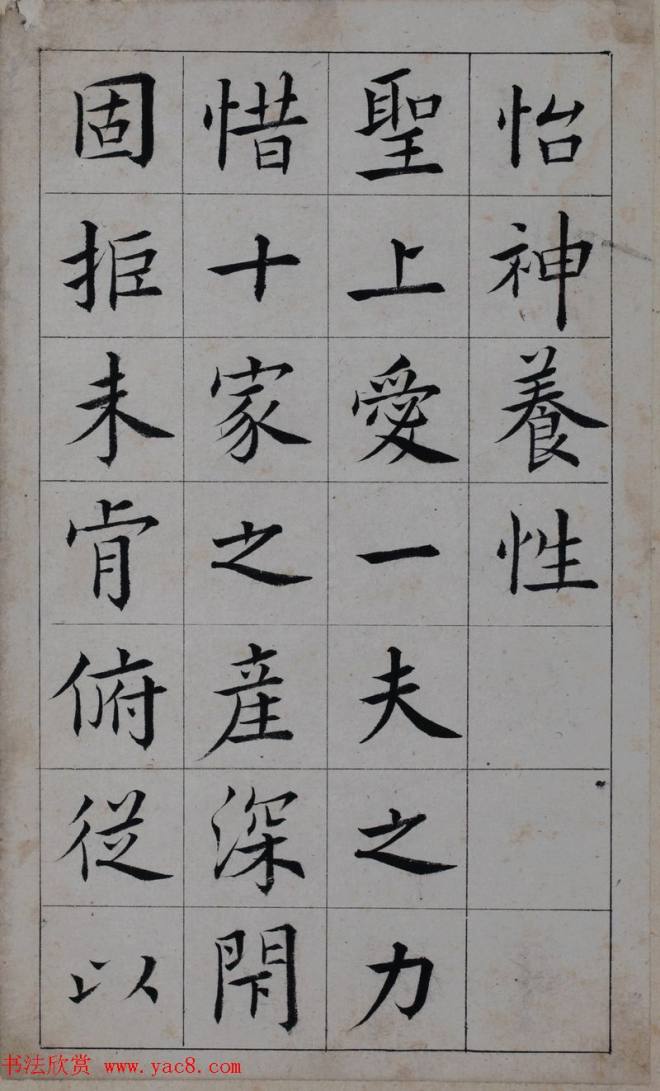 怡神養性
聖上愛一夫之力
惜十家之産深閇
固拒未肯俯従以
书法欣赏 www.yac8.com